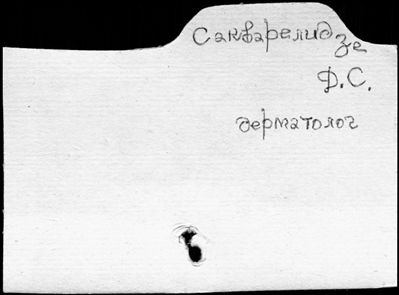 Сакварелидзе
Д.С.
дерматолог